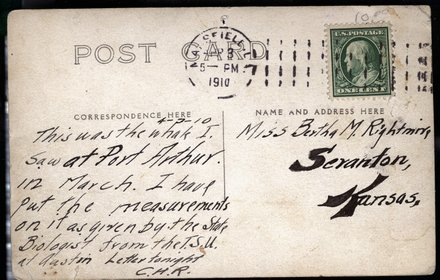 10
POST CARD
3
5 - PM
1910
U.S. POSTAGE
ONE CENT
CORRESPONDENCE HERE
NAME AND ADDRESS HERE
4-3-10
This was the whak I
saw at Port Arthur.
in March. I have
put the measurements
on it as given by the State
Biologist from the T.S.U.
at Austin Letter tonight
C.H.R.
Miss Bertha M. Rightmire,
Scranton,
Kansas,